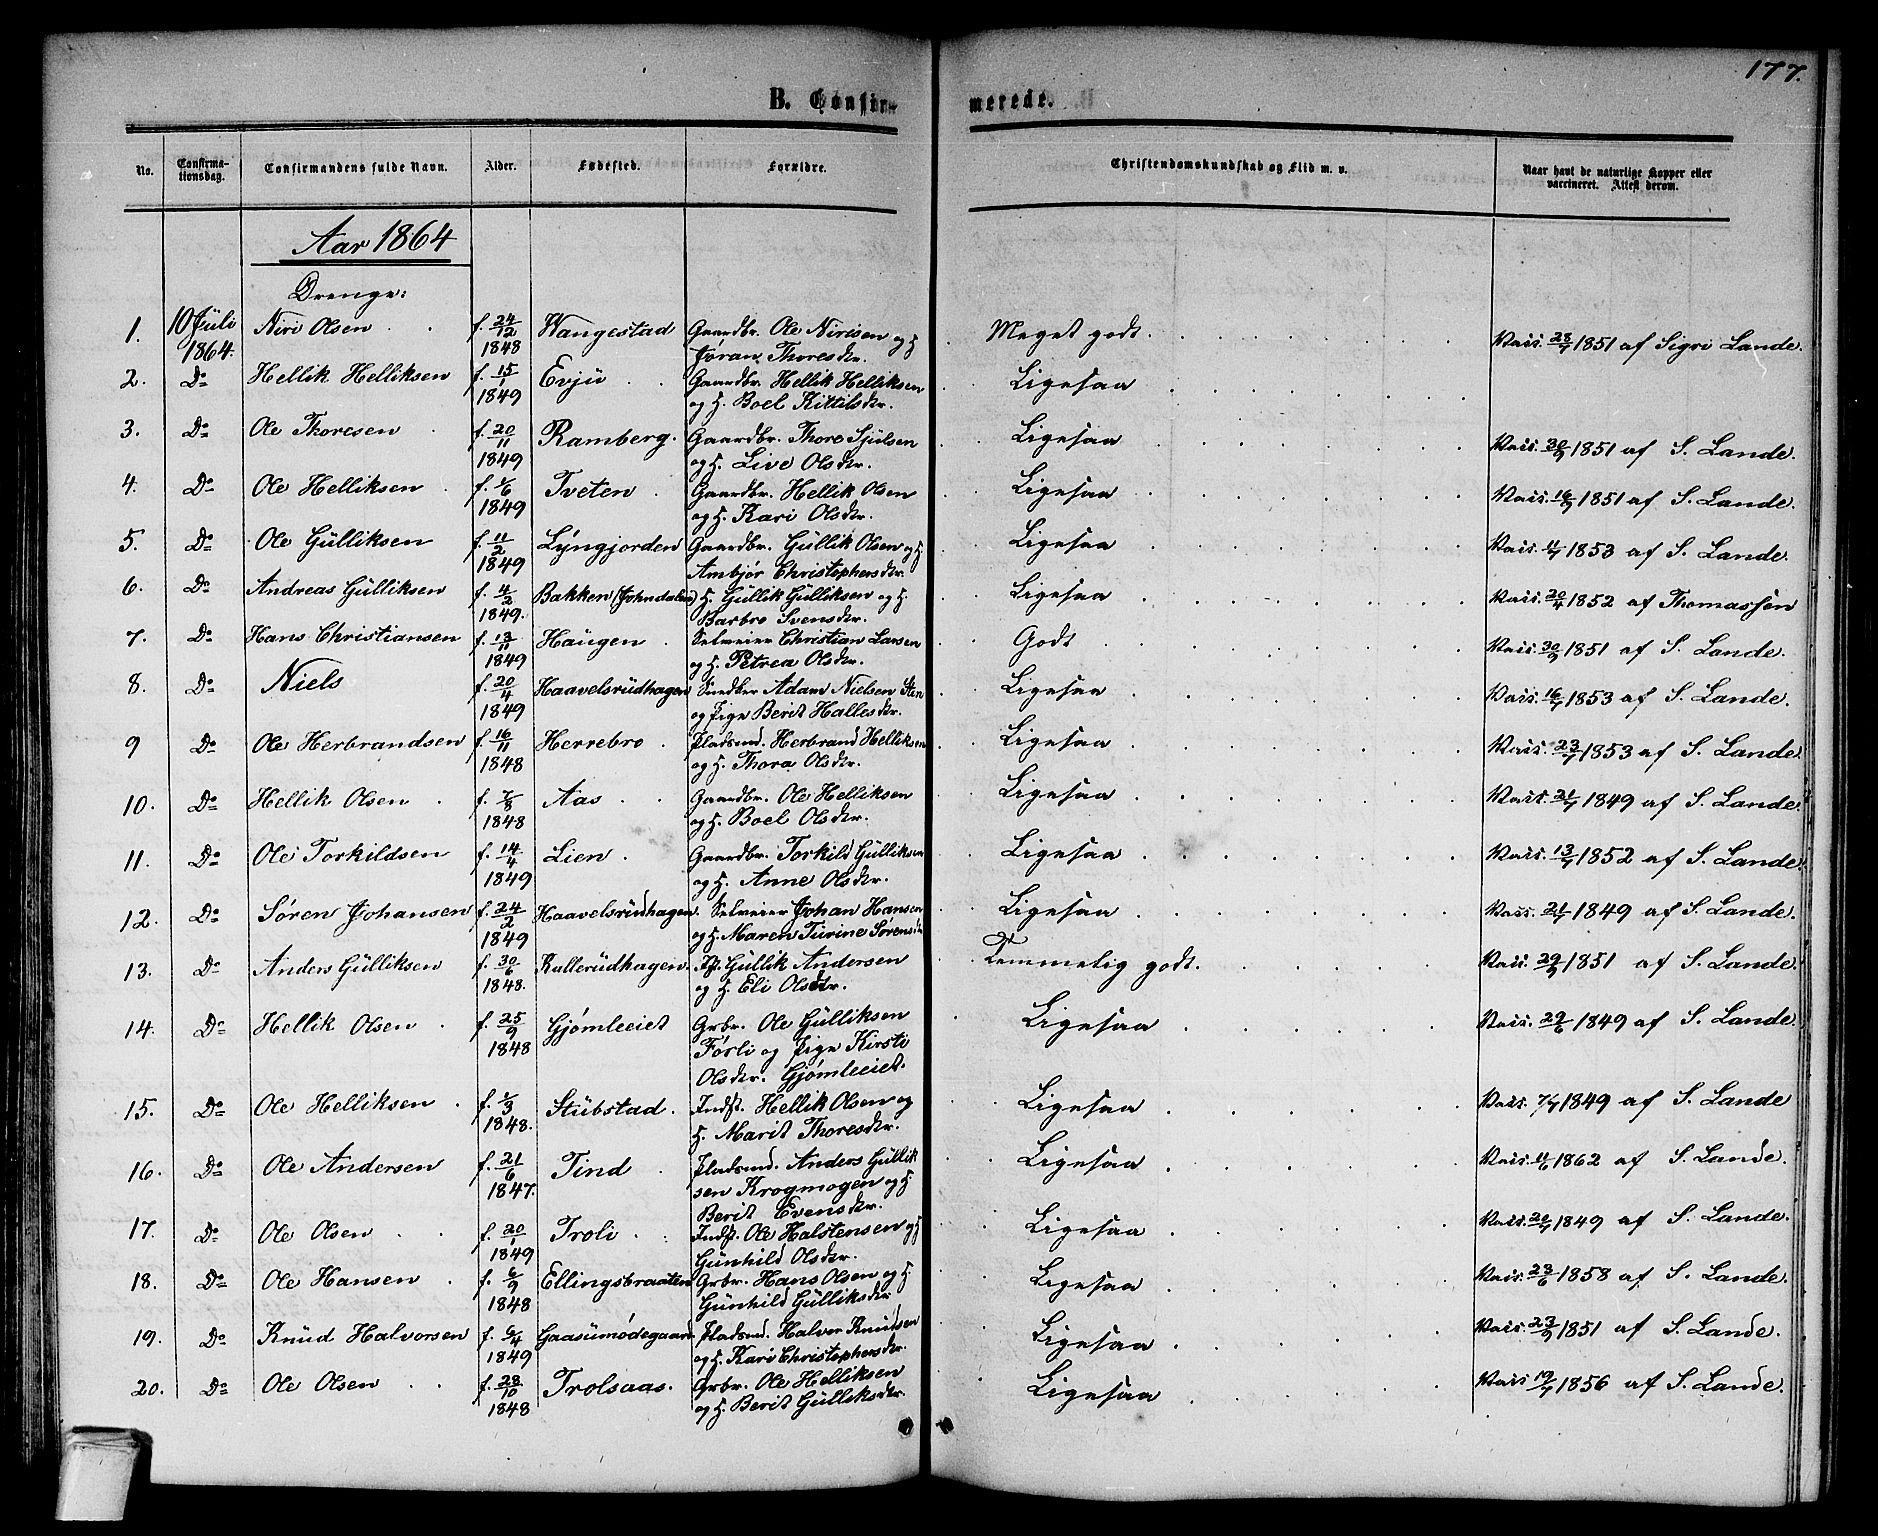 177.
B. Confirmerede.
No. Confirmationsdag. Confirmandens fulde Navn. Alder. Fødested. Forældre. Christendomskundskab og Flid m. v. Naar havt de naturlige Kopper eller vaccineret. Attest derom.
Aar 1864
Drenge:
1. 10 Jüli 1864. Niri Olsen f. 24/12 1848 Wangestad Gaardbr. Ole Nirisen og H. Jøran Thoresdtr. Meget godt. Vacc. 28/7 1851 af Sigri Lande.
2. Do Hellik Helliksen f. 15/1 1849 Evjü Gaardbr. Hellik Helliksen og H. Boel Kittilsdtr. Ligesaa
3. Do Ole Thoresen f. 20/11 1849 Ramberg. Gaardbr. Thore Sjulsen og H. Live Olsdtr. Ligesaa Vacc. 30/9 1851 af S. Lande.
4. Do Ole Helliksen f. 1/6 1849 Tveten Gaardbr. Hellik Olsen og H. Kari Olsdtr. Ligesaa Vacc. 16/9 1851 af S. Lande.
5. Do Ole Gülliksen f. 11/2 1849 Lyngjorden Gaardbr. Gullik Olsen og H. Ambjør Christophersdtr. Ligesaa Vacc. 11/7 1853 af S. Lande.
6. Do Andreas Gülliksen f. 4/2 1849. Bakken (Johndalen) H. Güllik Gülliksen og H. Barbro Svensdtr. Ligesaa Vacc. 20/4 1852 af Thomassen
7. Do Hans Christiansen f. 13/11 1849 Haügen Selveier Christian Larsen og H. Petrea Olsdtr. Godt Vacc. 30/9 1851 af S. Lande.
8. Do Niels f. 20/4 1849 Haavelsrüdhagen Snedker Adam Nielsen Sten og Pige Berit Hallesdtr. Ligesaa Vacc. 16/7 1853 af S. Lande.
9 Do Ole Herbrandsen f. 16/11 1848 Herrebro Pladsmd. Herbrand Helliksen og H. Thora Olsdtr. Ligesaa Vacc. 23/7 1853 af S. Lande.
10. Do Hellik Olsen f. 7/8 1848 Aas Gaardbr. Ole Helliksen og H. Boel Olsdtr. Ligesaa Vacc. 21/7 1849 af S. Lande.
11. Do Ole Torkildsen f. 14/4 1849 Lien Gaardbr. Torkild Gülliksen og H. Anne Olsdtr. Ligesaa Vacc. 13/7 1852 af S. Lande.
12. Do Søren Johansen f. 24/2 1849 Haavelsrüdhagen. Selveier Johan Hansen og H. Maren Turine Sørensdtr Ligesaa Vacc. 21/7 1849 af S. Lande.
13. Do Anders Gülliksen f. 30/6 1848. Kullerüdhagen. Güllik Andersen og H. Eli Olsdtr. Temmelig godt. Vacc. 29/9 1851 af S. Lande.
14. Do Hellik Olsen f. 25/9 1848 Gjømleeiet Grbr. Ole Gülliksen Førli og Pige Kirsti Olsdtr. Gjømleeiet. Ligesaa Vacc. 29/6 1849 af S. Lande.
15. Do Ole Helliksen f. 1/3 1848. Stübstad. Indst. Hellik Olsen og H. Marit Thoresdtr. Ligesaa Vacc. 7/7 1849 af S. Lande
16. Do Ole Andersen f. 21/6 1847. Tind Pladsmd. Anders Gülliksen Krogmogen og H. Berit Evensdtr. Ligesaa Vacc. 11/6 1862 af S. Lande.
17. Do Ole Olsen f. 20/1 1849 Troli Indst. Ole Halstensen og H Günhild Olsdtr. Ligesaa Vacc. 20/7 1849 af S. Lande.
18. Do Ole Hansen f. 6/9 1848 Ellingsbraaten Grbr. Hans Olsen og H. Günhild Gülliksdtr Ligesaa Vacc. 23/6 1858 af S. Lande.
19. Do Knüd Halvorsen f. 6/4 1849 Gaasümødegaard Pladsmd. Halvor Knüdsen og H. Kari Christophersdtr. Ligesaa Vacc. 23/9 1851 af S. Lande.
20. Do Ole Olsen f. 28/10 1848 Trolsaas. Grbr. Ole Helliksen og H. Berit Gülliksdtr. Ligesaa Vacc. 19/7 1856 af S. Lande.